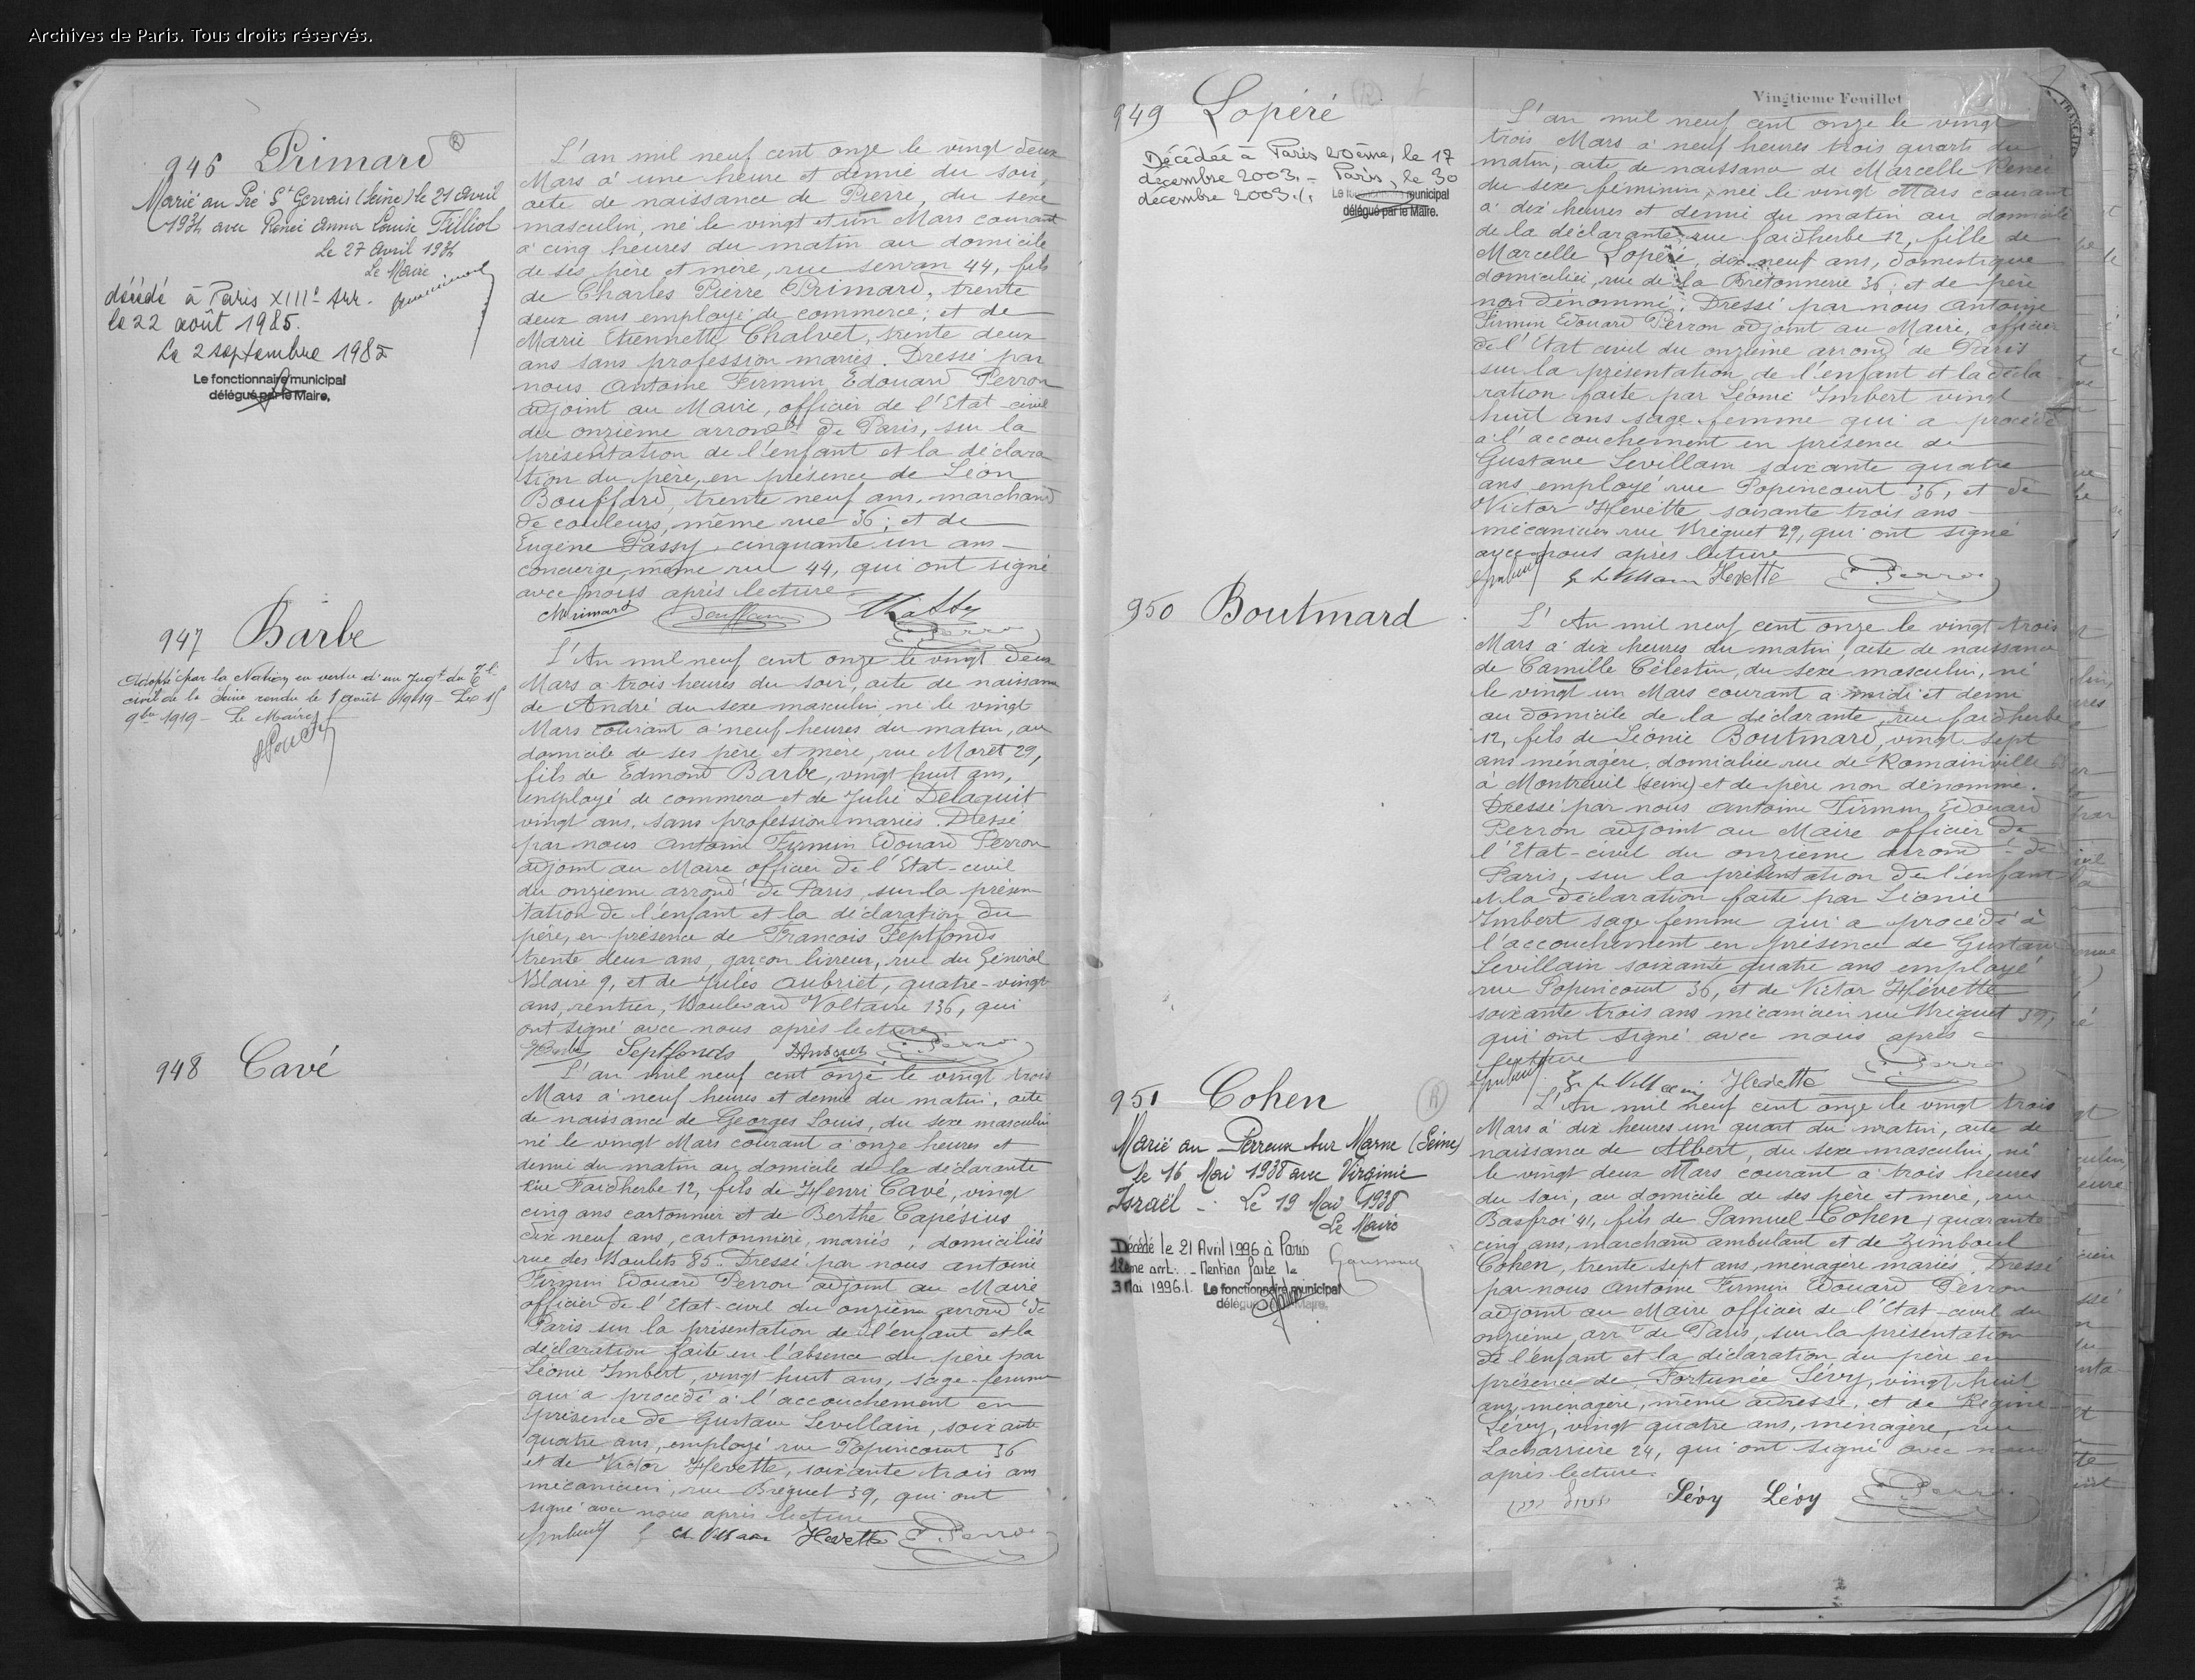 Archives de Paris. Tous droits réservés.
946 Primard
Marié au Pré St Gervais (Seine) le 21 Avril
1934 avec Renée Anna Louise Filliol
Le 27 Avril 1934
Le Maire
décédé à Paris XIIIe Arr.
le 22 août 1985.
Le 2 septembre 1985
Le fonctionnaire municipal
délégué par le Maire,
L'an mil neuf cent onze le vingt deux
Mars à une heure et demie du soir,
acte de naissance de Pierre, du sexe
masculin, né le vingt et un Mars courant
à cinq heures du matin au domicile
de ses père et mère, rue Servan 44, fils
de Charles Pierre Primard, trente
deux ans employé de commerce; et de
Marie Etiennette Chalvet, trente deux
ans sans profession mariés. Dressé par
nous Antoine Firmin Edouard Perron
adjoint au Maire, officier de l'Etat-civil
du onzième arrondt de Paris, sur la
présentation de l'enfant et la déclara
tion du père, en présence de Léon
Bouffard, trente neuf ans, marchand
de couleurs, même rue 36; et de
Eugène Passy, cinquante un ans
concierge, même rue 44, qui ont signé
avec nous après lecture
947 Barbe
Adopté par la Nation en vertu d'un Jugt du Tal
civil de la Seine rendu le 1 août 1919 - Le 15
9bre 1919 - Le Maire
L'An mil neuf cent onze le vingt deux
Mars à trois heures du soir, acte de naissance
de André du sexe masculin né le vingt
Mars courant à neuf heures du matin, au
domicile de ses père et mère, rue Moret 29,
fils de Edmond Barbe, vingt huit ans,
employé de commerce et de Julie Delaquit
vingt ans, sans profession mariés. Dressé
par nous Antoine Firmin Edouard Perron
adjoint au Maire officier de l'Etat-civil
du onzième arrondt de Paris, sur la présen
tation de l'enfant et la déclaration du
père, en présence de François Septfonds
trente deux ans, garçon livreur, rue du Général
Blaise 9, et de Jules Aubriet, quatre-vingt
ans, rentier, Boulevard Voltaire 136, qui
ont signé avec nous après lecture
Septfonds
948 Cavé
L'an mil neuf cent onze le vingt trois
Mars à neuf heures et demie du matin, acte
de naissance de Georges Louis, du sexe masculin
né le vingt Mars courant à onze heures et
demie du matin au domicile de la déclarante
rue Faidherbe 12, fils de Henri Cavé, vingt
cinq ans cartonnier et de Berthe Capésius
dix neuf ans, cartonnière, mariés, domiciliés
rue des Boulets 85. Dressé par nous Antoine
Firmin Edouard Perron adjoint au Maire
officier de l'Etat-civil du onzième arrondt de
Paris sur la présentation de l'enfant et la
déclaration faite en l'absence du père par
Léonie Imbert, vingt huit ans, sage-femme
qui a procédé à l'accouchement en
présence de Gustave Levillain, soixante
quatre ans, employé rue Popincourt 36
et de Victor Hévette, soixante trois ans
mécanicien, rue Bréguet 39, qui ont
signé avec nous après lecture
Hevette
Vingtième Feuillet
949 Lopéré
Décédée à Paris 20ème, le 17
décembre 2003. - Paris, le 30
décembre 2003./.
municipal
délégué par le Maire.
L'an mil neuf cent onze le vingt
trois Mars à neuf heures trois quarts du
matin, acte de naissance de Marcelle Renée
du sexe féminin, née le vingt Mars courant
à dix heures et demie du matin au domicile
de la déclarante, rue faidherbe 12, fille de
Marcelle Lopéré, dix neuf ans, domestique
domiciliée, rue de la Bretonnerie 36; et de père
non dénommé. Dressé par nous Antoine
Firmin Edouard Perron adjoint au Maire, officier
de l'Etat civil du onzième arrondt de Paris
sur la présentation de l'enfant et la décla
ration faite par Léonie Imbert vingt
huit ans sage-femme qui a procédé
à l'accouchement en présence de
Gustave Levillain soixante quatre
ans employé rue Popincourt 36, et de
Victor Hévette soixante trois ans
mécanicien rue Bréguet 29, qui ont signé
avec nous après lecture
Hevette
950 Boutmard
L'An mil neuf cent onze le vingt trois
Mars à dix heures du matin, acte de naissance
de Camille Célestin, du sexe masculin, né
le vingt un Mars courant à midi et demi
au domicile de la déclarante, rue faidherbe
12, fils de Léonie Boutmard, vingt sept
ans ménagère, domiciliée rue de Romainville
à Montreuil (Seine) et de père non dénommé.
Dressé par nous Antoine Firmin Edouard
Perron adjoint au Maire officier de
l'Etat-civil du onzième arrondt de
Paris, sur la présentation de l'enfant
et la déclaration faite par Léonie
Imbert sage femme qui a procédé à
l'accouchement en présence de Gustave
Levillain soixante quatre ans employé
rue Popincourt 36, et de Victor Hévette
soixante trois ans mécanicien rue Bréguet 39,
qui ont signé avec nous après
lecture
Hevette
951 Cohen
Marié au Perreux sur Marne (Seine)
le 16 Mai 1938 avec Virginie
Israël - Le 19 Mai 1938
Le Maire
Décédé le 21 Avril 1996 à Paris
12ème arrt. - Mention faite le
3 Mai 1996./. Le fonctionnaire municipal
délégué Maire,
L'An mil neuf cent onze le vingt trois
Mars à dix heures un quart du matin, acte de
naissance de Albert, du sexe masculin, né
le vingt deux Mars courant à trois heures
du soir, au domicile de ses père et mère, rue
Basfroi 41, fils de Samuel Cohen, quarante
cinq ans, marchand ambulant et de Zimboul
Cohen, trente sept ans, ménagère mariés. Dressé
par nous Antoine Firmin Edouard Perron
adjoint au Maire officier de l'Etat-civil du
onzième arrt de Paris, sur la présentation
de l'enfant et la déclaration du père en
présence de Fortunée Lévy, vingt huit
ans, ménagère, même adresse, et de Régine
Lévy, vingt quatre ans, ménagère, rue
Lacharrière 24, qui ont signé avec nous
après lecture.
Lévy Lévy